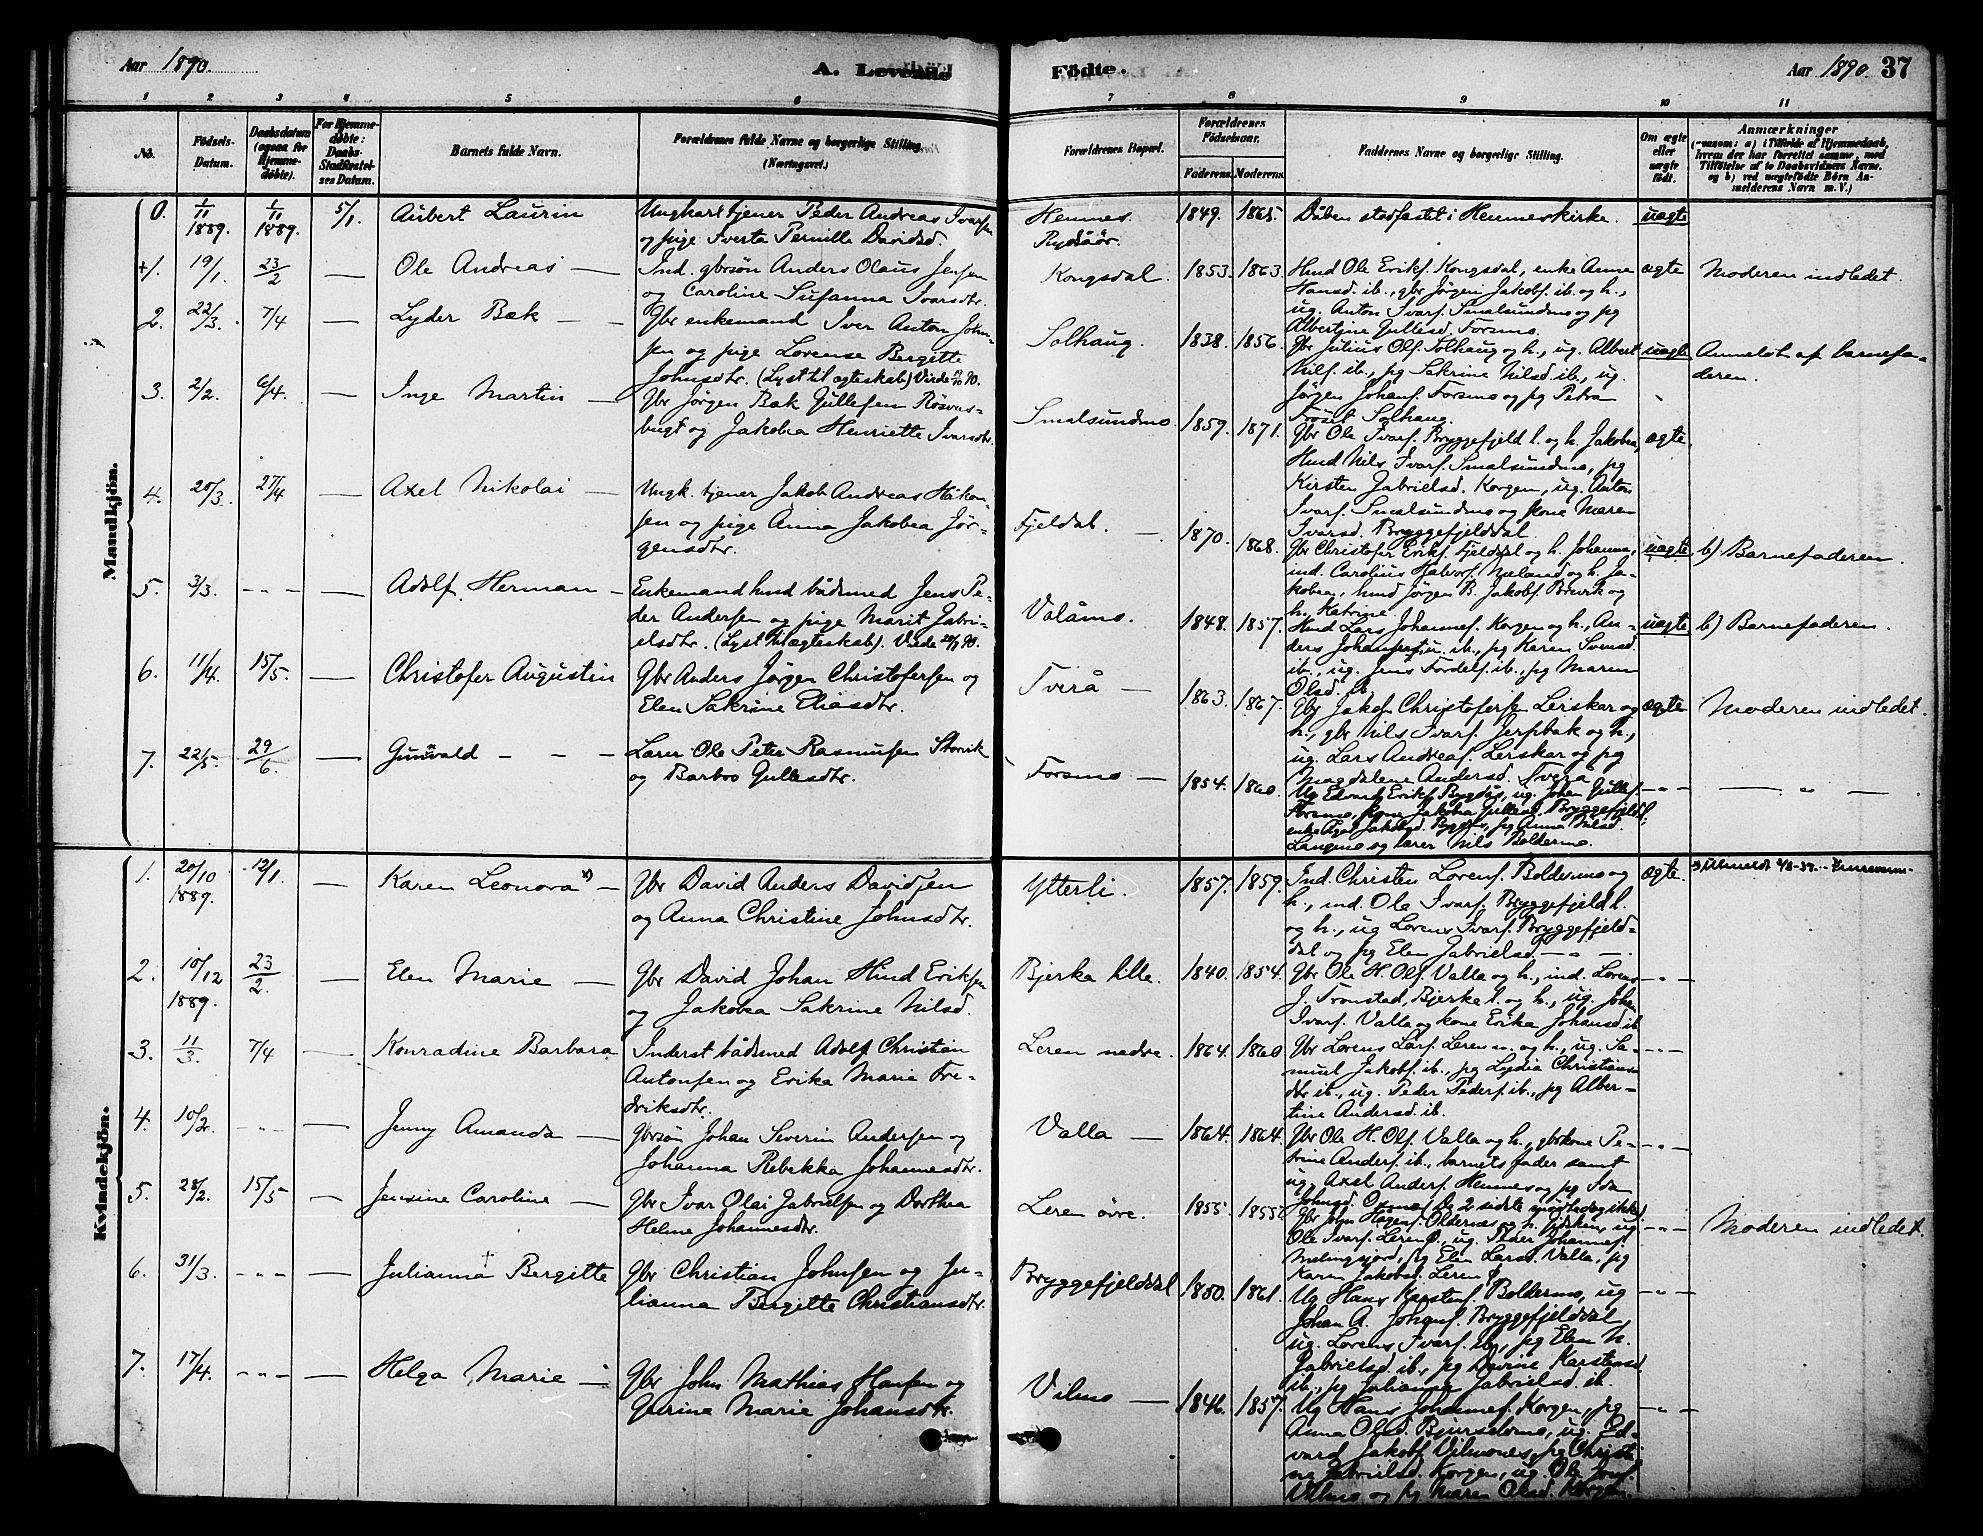 Aar 1890.
A. Levende
Födte.
Aar 1890. 37
1 2 3 4 5 6 7 8 9 10 11
No.
Födsels-
Datum.
Daabsdatum
(ogsaa for
Hjemme-
døbte).
For Hjemme-
døbte:
Daabs-
Stadfæstel-
ses Datum.
Barnets fulde Navn.
Forældrenes fulde Navne og borgerlige Stilling
(Næringsvei.)
Forældrenes Bopæl.
Forældrenes
Födselsaar.
Faderens. Moderens.
Faddernes Navne og borgerlige Stilling.
Om ægte
eller
uægte
födt.
Anmærkninger
(saasom: a) i Tilfælde af Hjemmedaab,
hvem der har forrettet samme, med
Tilföielse af to Daabsvidners Navne,
og b) ved uægtefödte Börn An-
melderens Navn m. V.)
Mandkjön.
0. 1/11 1889. 1/11 1889. 5/1. Aubert Laurin
Ungkarl tjener Peder Andreas Ivarsen
og pige Iverta Pernille Davidsd.
Hennes
1849. 1865. Dåben stadfæstet i Hennes kirke. uægte
+1. 19/1. 23/2 — Ole Andreas —
Ind. gbrsön Anders Olaus Jensen
og Caroline Susanna Ivarsdtr.
Kongsdal. 1853. 1863.
Hmd Ole Eriks. Kongsdal, enke Anne
Hansd. ib., gbr Jörgen Jakobs. ib. og h.,
ug. Anton Ivars. Smalsundmo og pg
Albertine Gullesd. Forsmo.
ægte Moderen indledet.
2. 22/3. 7/4 — Lyder Bæk —
Gbr enkemand Iver Anton John-
sen og pige Lorense Bergitte
Johnsdtr. (Lyst til ægteskab) Viede
Solhaug. 1838. 1856.
Gbr Julius Ols. Solhaug og h., ug. Albert
Nils. ib., pg Sakrine Nilsd. ib., ug.
Jörgen Johans. Forsmo og pg Petra
Solhaug.
uægte Anmeldt af barnefa-
deren.
3. 2/2. 6/4. — Inge Martin —
Gbr Jörgen Bæk Gullesen Rösvas-
bugt og Jakobea Henriette Ivarsdtr.
Smalsundmo. 1859. 1871.
Gbr Ole Ivars. Bryggefjeld l. og h. Jakobea,
Hmd Nils Ivars. Smalsundmo, pg
Kirsten Gabrielsd. Korgen, ug. Anton
Ivars. Smalsundmo og kone Maren
Ivarsd. Bryggefjelddal.
ægte.
4. 20/3. 27/4 — Axel Nikolai —
Ungk. tjener Jakob Andreas Håkon-
sen og pige Anna Jakobea Jör-
gensdtr.
Fjeldal. — 1870. 1868.
Gbr Christofer Eriks. Fjelddal og h. Johanna,
ind. Carolius Halvors. Næland og h. Ja-
kobea, hmd Jörgen B. Jakobs. Brevik og
h. Katrine.
uægte b) Barnefaderen.
5. 3/3. - " - — Adolf Herman —
Enkemand hmd bådsmed Jens Pe-
der Andersen og pige Marit Gabri-
elsdtr. (Lyst til ægteskab). Viede
Valåmo. 1848. 1857.
Hmd Lars Johannes. Korgen og h., An-
ders ib., pg Karen Svensd.
ib., ug. Jens ib., pg Maren
Olsd. ib.
uægte b) Barnefaderen.
6. 11/4. 15/5. — Christofer Augustin
Gbr Anders Jörgen Christofersen og
Elen Sakrine Eliasdtr.
Tverå — 1863. 1867.
Gbr Jakob Christofers. Lerskar og
h., gbr Nils Ivars. Jerpbak og h.,
ug. Lars Andreas. Lerskar og pg
Magdalene Andersd. Tverå
ægte Moderen indledet.
7. 22/5. 29/6. — Gunvald - - -
Lærer Ole Peter Rasmussen Storvik
og Barbro Gullesdtr.
Forsmo — 1854. 1860.
Ug Edvard Eriks. Bygdås, ug. Johan Gulles.
Forsmo, kone Jakobea Gullesd. Bryggefjeld l.,
pg Anna Nilsd.
Langmo og lærer Nils Boldermo.
- " - — " —
Kvindekjön.
1. 20/10 1889. 12/1. — Karen Leonora x) —
Gbr David Anders Davidsen
og Anna Christine Johnsdtr.
Ytterli. 1857. 1859.
Ind. Christen Lorens. Boldermo og
h., ind. Ole Ivars. Bryggefjeld l.
og h., ug Lorens Ivars. Bryggefjeld-
dal og pg Elen Gabrielsd. - " -
ægte.
2. 10/12 1889. 23/2. — Elen Marie —
Gbr David Johan Hind Eriksen
og Jakobea Sakrine Nilsd.
Bjerka lille. 1840. 1854.
Gbr Ole H. Ols. Valla og h., ind. Lorens
J. Tronstad, Bjerke l. og h., ug. Johan
Ivars. Valla og kone Erika Johansd. ib.
- " -
3. 11/3. 7/4 — Konradine Barbara
Inderst bådsmed Adolf Christian
Antonsen og Erika Marie Fre-
driksdtr.
Leren nedre. 1864. 1860
Gbr Lorens Lars. Leren n. og h., ug. Sa-
muel Jakobs. ib., pg Lydia Christians-
dtr ib., ug. Peder Peders. ib., pg Alber-
tine Andersd. ib.
- " -
4. 10/2. - " - — Jenny Amanda —
Gbrsön Johan Severin Andersen og
Johanna Rebekka Johannesdtr.
Valla — 1864. 1864.
Gbr Ole H. Ols. Valla og h., gbrkone Pe-
trine Anders. ib., barnets fader samt
ug. Axel Anders. Hennes og pg Ida
Johnsd. (De 2 sidste mødte dog ikke)
- " -
5. 28/2. 15/5 — Jensine Caroline —
Gbr Ivar Olai Gabrielsen og Dorthea
Helene Johannesdtr.
Leren övre. 1855. 1855.
Gbr John Hagens. Oldernæs og h.
Ole Ivars. Leren ö., ug. Peder Johannes.
pg Elen Larsd. Valla, pg
Karen Jakobsd. Leren ö
- " - Moderen indledet.
6. 31/3. - " - — Julianna † Bergitte
Gbr Christian Johnsen og Ju-
lianna Bergitte Christiansdtr.
Bryggefjelddal 1850. 1861.
Ug Hans Karstens. Boldermo, ug
Johan A. Johans. Bryggefjelddal,
ug. Lorens Ivars. ib., pg Elen N.
Gabrielsd. ib., pg Davine Karstensd.
ib., pg Julianna Gabrielsd. ib.
- " -
7. 17/4. - " - — Helga Marie —
Gbr John Mathias Hansen og
Gurina Marie Johansdtr.
Vilmo — 1846. 1857.
Ug Hans Johannes. Korgen, pg
Anna Olsd. Bjurselvmo, ug. Ed-
vard Jakobs. Vilmones, pg Christi-
ne Gabrielsd. Korgen, ug. Ole Jons.
Vilmo og pg Maren Olsd. Korgen.
- " -